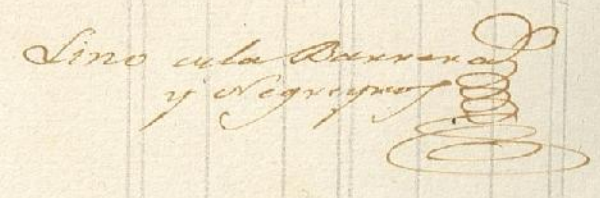 Lino de la Barrera
y Negreyros